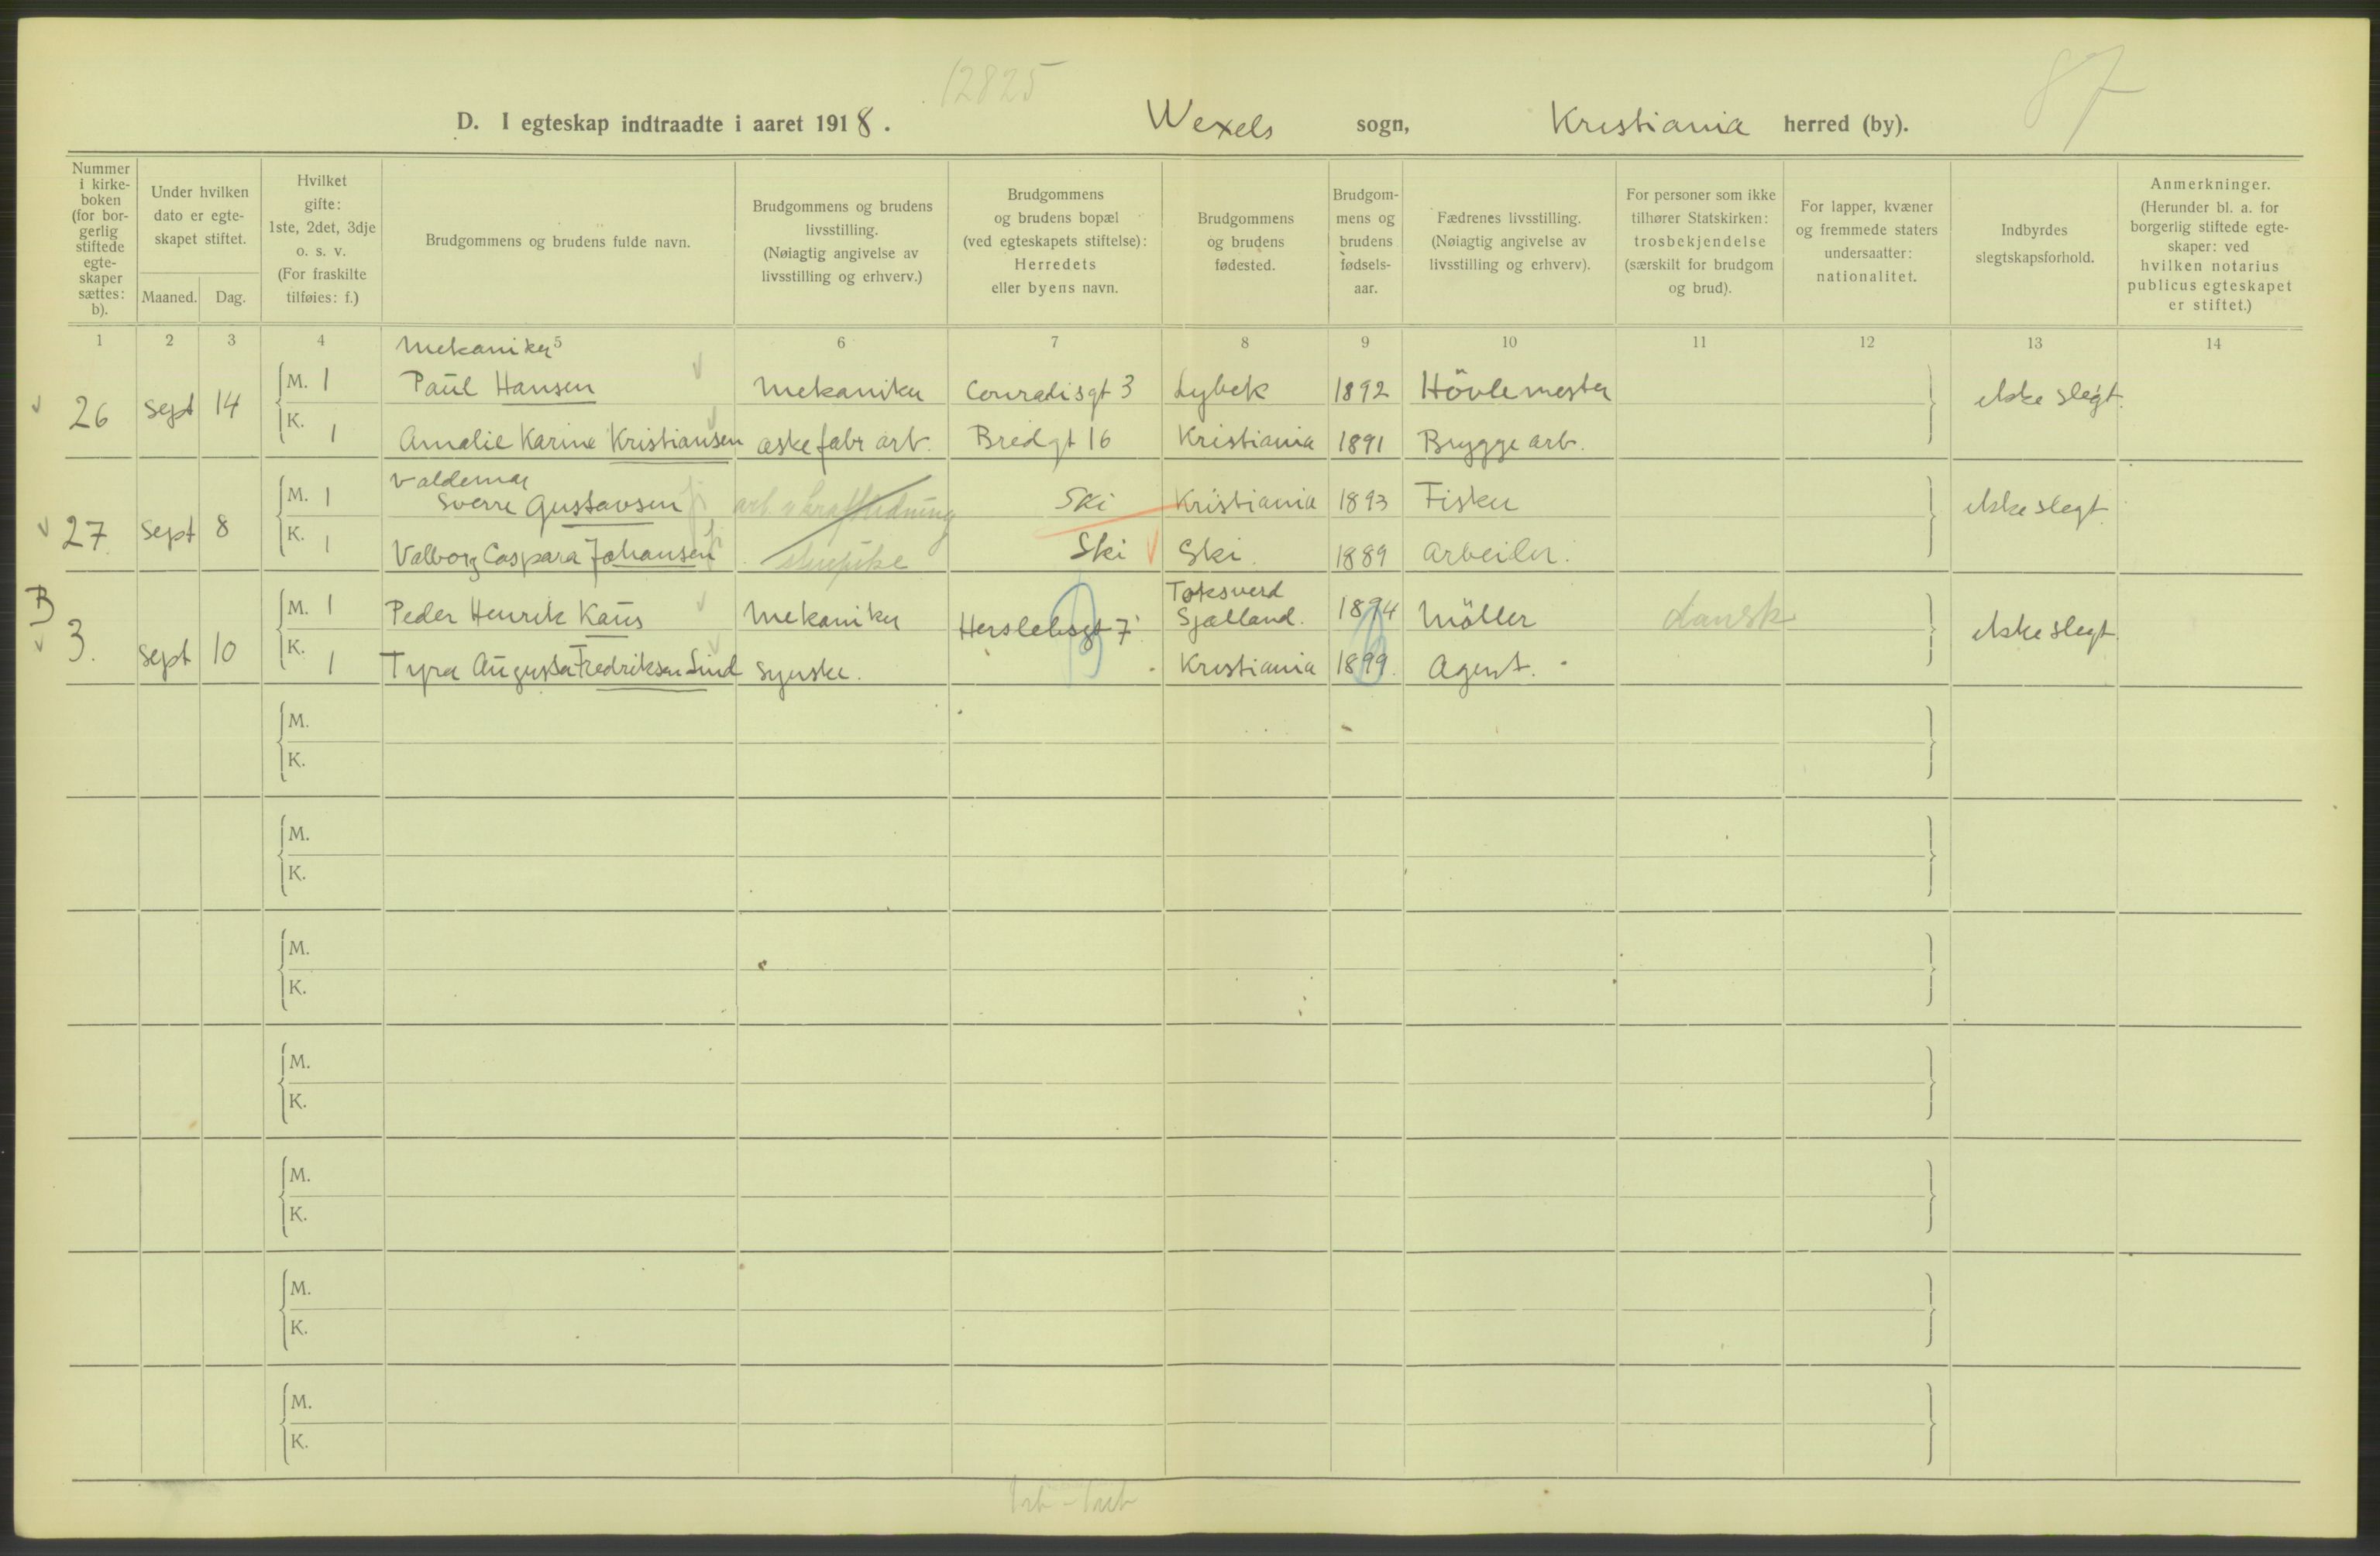 12825
87
D. I egteskap indtraadte i aaret 1918. Wexels sogn, Kristiania herred (by).
Nummer i kirke- boken (for bor- gerlig stiftede egte- skaper sættes: b).
Under hvilken dato er egte- skapet stiftet.
Maaned. Dag.
Hvilket gifte: 1ste, 2det, 3dje o. s. v. (For fraskilte tilføies: f.)
Brudgommens og brudens fulde navn.
Brudgommens og brudens livsstilling. (Nøiagtig angivelse av livsstilling og erhverv.)
Brudgommens og brudens bopæl (ved egteskapets stiftelse): Herredets eller byens navn.
Brudgommens og brudens fødested.
Brudgom- mens og brudens fødsels- aar.
Fædrenes livsstilling. (Nøiagtig angivelse av livsstilling og erhverv).
For personer som ikke tilhører Statskirken: trosbekjendelse (særskilt for brudgom og brud).
For lapper, kvæner og fremmede staters undersaatter: nationalitet.
Indbyrdes slegtskapsforhold.
Anmerkninger. (Herunder bl. a. for borgerlig stiftede egte- skaper: ved hvilken notarius publicus egteskapet er stiftet.)
1 2 3 4 5 6 7 8 9 10 11 12 13 14
Mekaniker
26 Sept 14 M. 1 Paul Hansen Mekaniker Conradisgt 3 Lybek 1892 Hövlemester ikke slegt.
K. 1 Amalie Karine Kristiansen æskefabr arb. Bredgt 16 Kristiania 1891 Brygge arb.
Valdemar
27 Sept 8 M. 1 Sverre Gustavsen arb. v kraftledning Ski Kristiania 1893 Fisker ikke slegt
K. 1 Valborg Caspara Johansen Ski Ski. 1889 Arbeider.
B
3. Sept 10 M. 1 Peder Henrik Kaus Mekaniker Herslebsgt 7 Sjælland. 1894 Möller dansk ikke slegt
K. 1 Tyra Augusta Fredriksen Lind Syerske. Kristiania 1899. Agent.
M.
K.
M.
K.
M.
K.
M.
K.
M.
K.
M.
K.
M.
K.